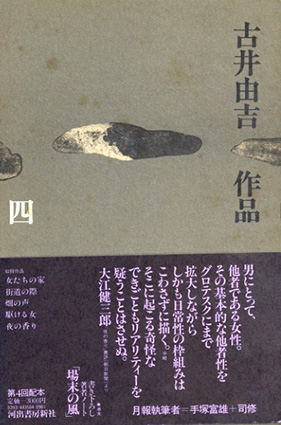 古井由吉 作品
四
男にとって、
他者である女性。
その基本的な他者性を
グロテスクにまで
拡大しながら
しかも日常性の枠組みは
こわさずに描く。
そこに起こる奇怪な
できごともリアリティーを
疑うことはさせぬ。
大江健三郎
月報執筆者=手塚富雄+司修
書き下ろし
著者ノート
「場末の風」
収録作品
女たちの家
街道の際
畑の声
駆ける女
夜の香り
第4回配本
河出書房新社